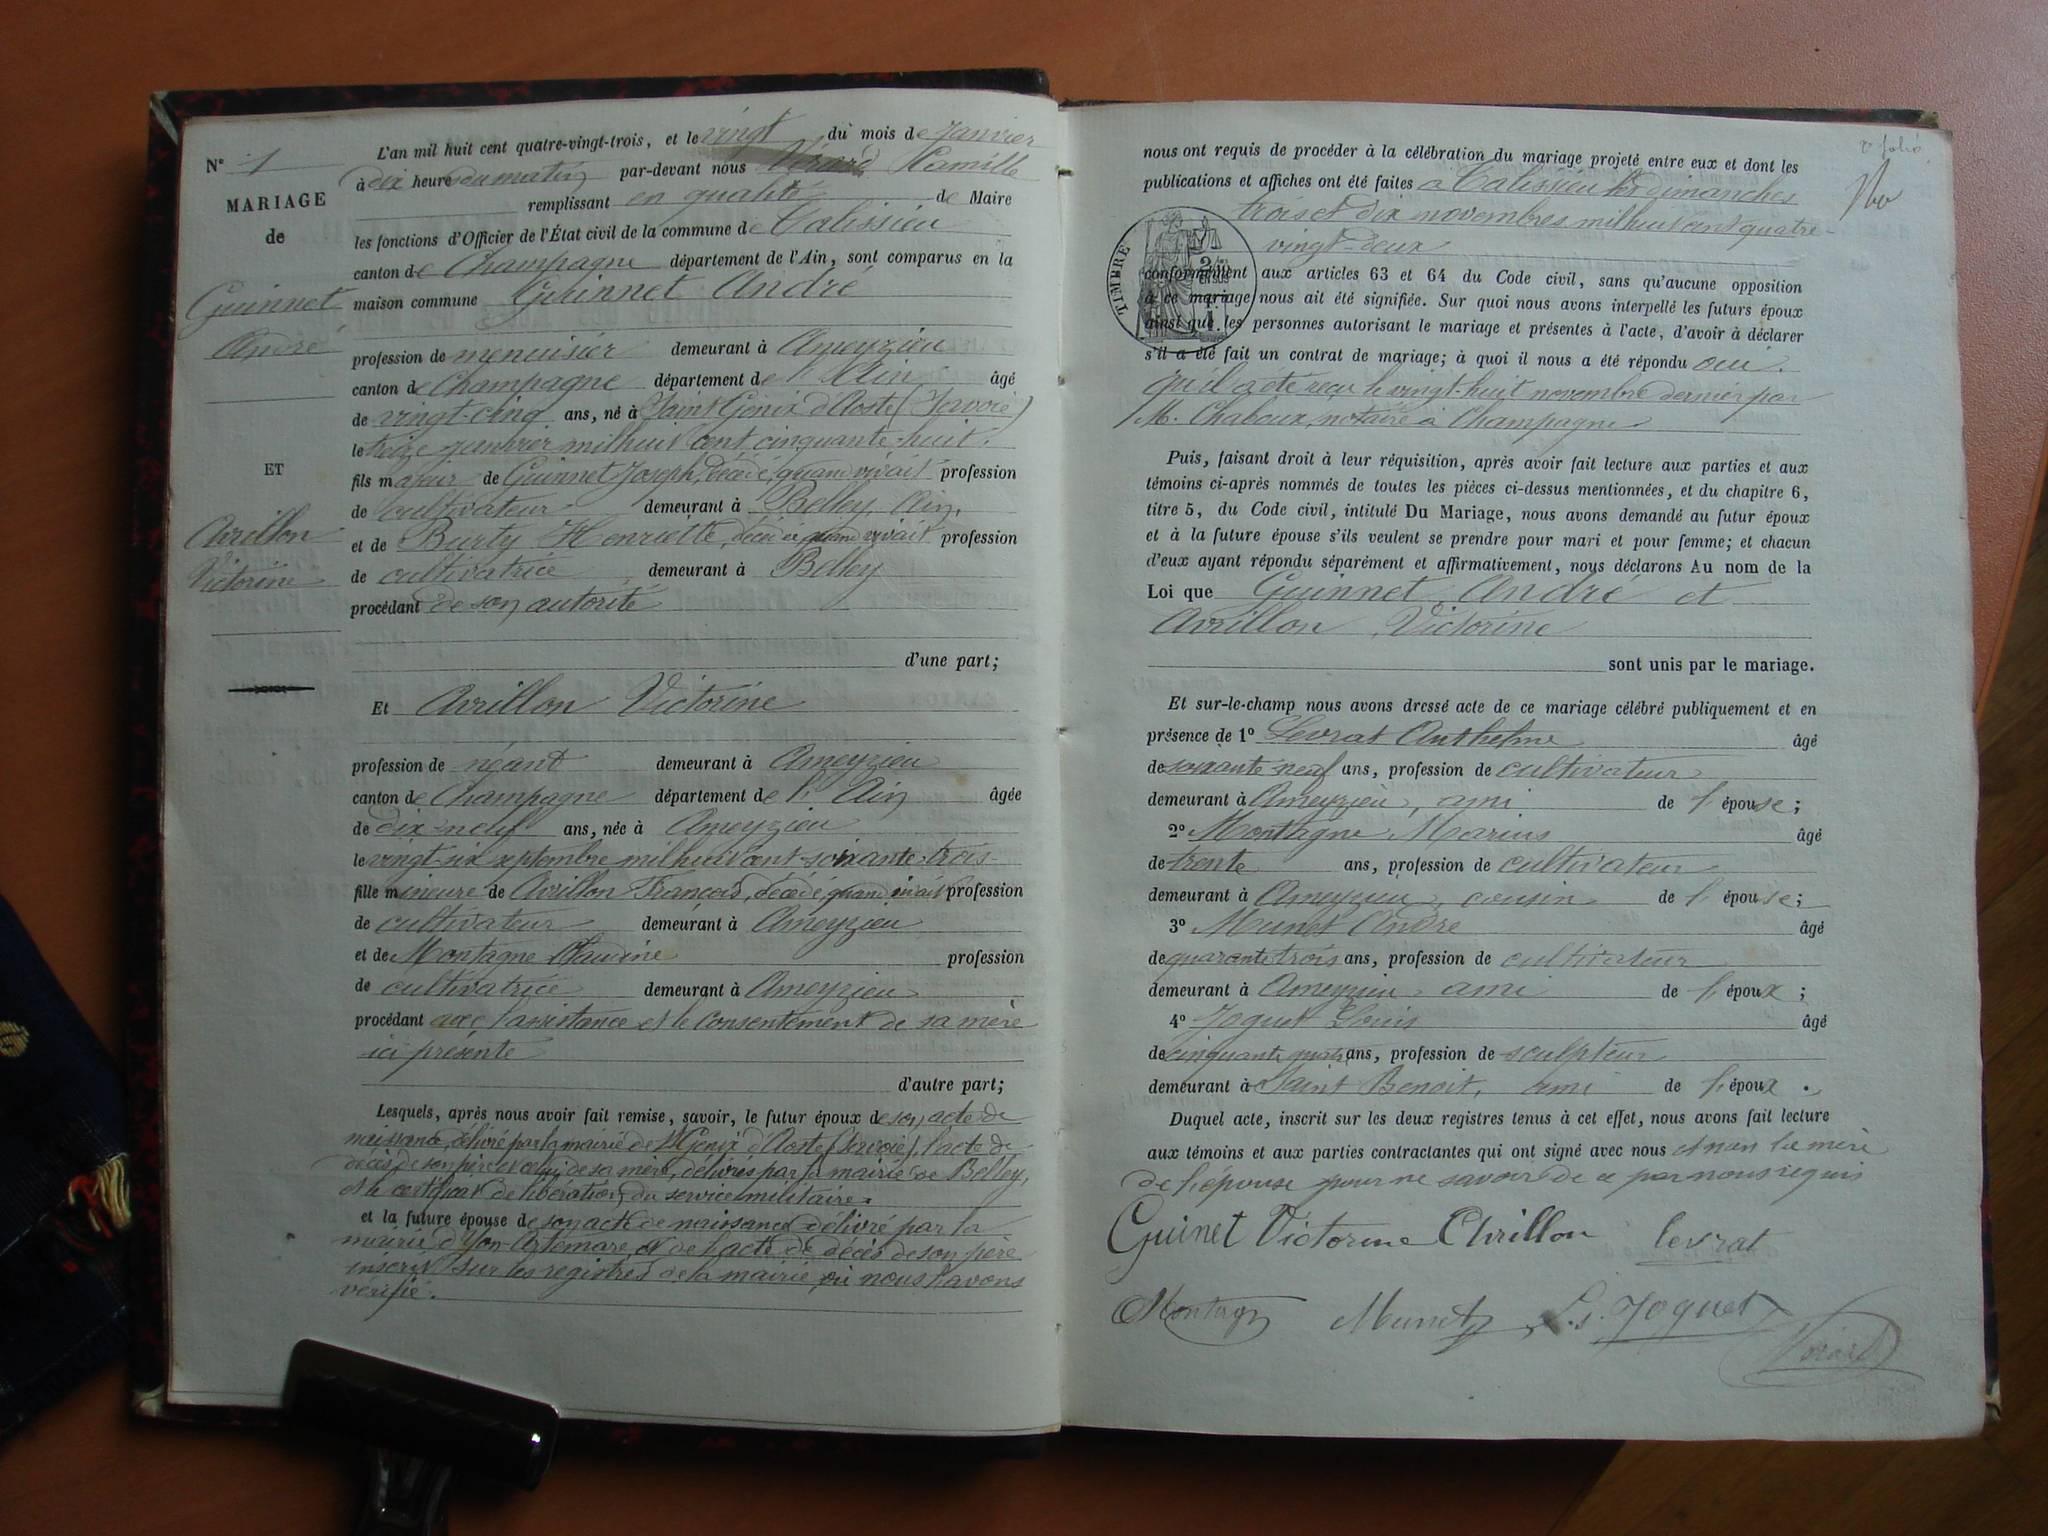 N° 1
MARIAGE
de
Guinnet
André
ET
Avrillon
Victorine
L'an mil huit cent quatre-vingt-trois, et le vingt du mois de Janvier
à dix heure du matin par-devant nous Vérard Camille
remplissant en qualité de Maire
les fonctions d'Officier de l'État civil de la commune de Talissieu
canton de Champagne département de l'Ain, sont comparus en la
maison commune Guinnet André
profession de menuisier demeurant à Ameyzieu
canton de Champagne département de l'Ain âgé
de vingt-cinq ans, né à Saint Genix d'Aoste (Savoie)
le treize janvier mil huit cent cinquante-huit.
fils majeur de Guinnet Joseph, décédé, quand vivait profession
de cultivateur demeurant à Belley, Ain,
et de Burty Henriette, décédée quand vivait profession
de cultivatrice demeurant à Belley
procédant de son autorité
d'une part;
Et Avrillon Victorine
profession de néant demeurant à Ameyzieu
canton de Champagne département de l'Ain âgée
de dix-neuf ans, née à Ameyzieu
le vingt-six septembre mil huit cent soixante-trois
fille mineure de Avrillon François, décédé, quand vivait profession
de cultivateur demeurant à Ameyzieu
et de Montagne Claudine profession
de cultivatrice demeurant à Ameyzieu
procédant avec l'assistance et le consentement de sa mère
ici présente
d'autre part;
Lesquels, après nous avoir fait remise, savoir, le futur époux de son acte de
naissance, délivré par la mairie de St Genix d'Aoste (Savoie), l'acte de
décès de son père et celui de sa mère, délivrés par la mairie de Belley,
et le certificat de libération du service militaire.
et la future épouse de son acte de naissance délivré par la
mairie d'Yon-Artemare, et de l'acte de décès de son père
inscrit sur les registres de la mairie, où nous l'avons
vérifié.
2e folio
nous ont requis de procéder à la célébration du mariage projeté entre eux et dont les
publications et affiches ont été faites à Talissieu les dimanches
trois et dix novembres mil huit cent quatre-
vingt-deux
TIMBRE
conformément aux articles 63 et 64 du Code civil, sans qu'aucune opposition
à ce mariage nous ait été signifiée. Sur quoi nous avons interpellé les futurs époux
ainsi que les personnes autorisant le mariage et présentes à l'acte, d'avoir à déclarer
s'il a été fait un contrat de mariage; à quoi il nous a été répondu oui.
qu'il a été reçu le vingt-huit novembre dernier par
M. Chaboux, notaire à Champagne
Puis, faisant droit à leur réquisition, après avoir fait lecture aux parties et aux
témoins ci-après nommés de toutes les pièces ci-dessus mentionnées, et du chapitre 6,
titre 5, du Code civil, intitulé Du Mariage, nous avons demandé au futur époux
et à la future épouse s'ils veulent se prendre pour mari et pour femme; et chacun
d'eux ayant répondu séparément et affirmativement, nous déclarons Au nom de la
Loi que Guinnet, André et
Avrillon, Victorine
sont unis par le mariage.
Et sur-le-champ nous avons dressé acte de ce mariage célébré publiquement et en
présence de 1° Levrat Anthelme âgé
de soixante neuf ans, profession de cultivateur
demeurant à Ameyzieu, ami de l'épouse;
2° Montagne Marius âgé
de trente ans, profession de cultivateur
demeurant à Ameyzieu, cousin de l'épouse;
3° Munet André âgé
de quarante trois ans, profession de cultivateur
demeurant à Ameyzieu ami de l'époux;
4° Joguet Louis âgé
de cinquante quatre ans, profession de sculpteur
demeurant à Saint Benoit, ami de l'époux.
Duquel acte, inscrit sur les deux registres tenus à cet effet, nous avons fait lecture
aux témoins et aux parties contractantes qui ont signé avec nous et non la mère
de l'épouse pour ne savoir de ce par nous requis
Guinet Victorine Avrillon levrat
Montagne Munet Ls Joguet
Vérard